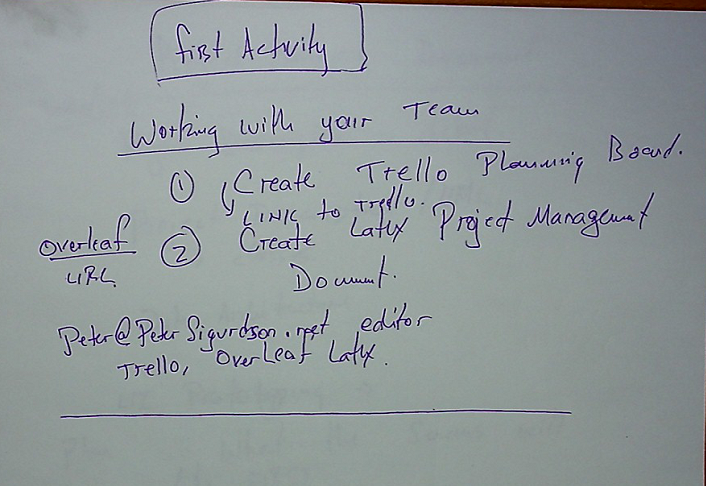 First Activity
Working with your Team
① Create Trello Planning Board.
LINK to Trello.
Overleaf ② Create Latex Project Managemnt
URL
Document.
Peter@PeterSigurdson.net editor
Trello, OverLeaf Latex.